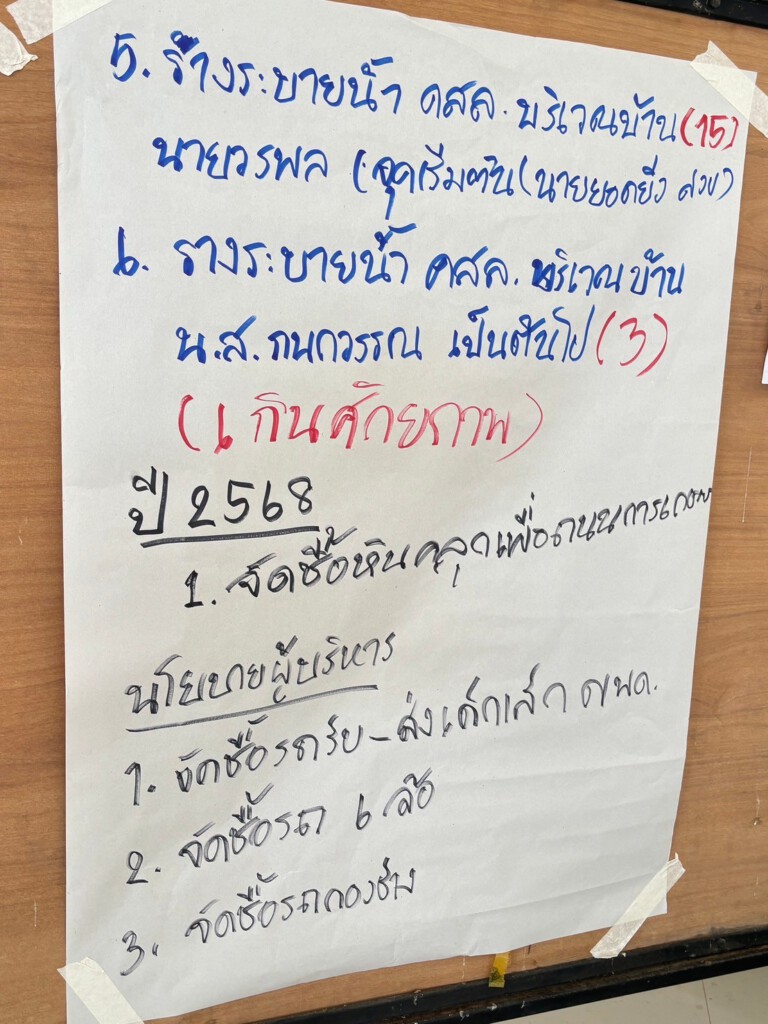 5. รางระบายน้ำ คสล. บริเวณบ้าน (15)
นายวรพล (จุดเริ่มต้น (นายยอดยิ่ง
6. รางระบายน้ำ คสล. บริเวณบ้าน
น.ส. กนกวรรณ เป็นต้นไป (3)
(เกินศักยภาพ)
ปี 2568
1. จัดซื้อหินคลุกเพื่อถนนการเกษตร
นโยบายผู้บริหาร
1. จัดซื้อรถรับ - ส่งเด็กเล็ก ศพด.
2. จัดซื้อรถ 6 ล้อ
3. จัดซื้อรถกองช่าง